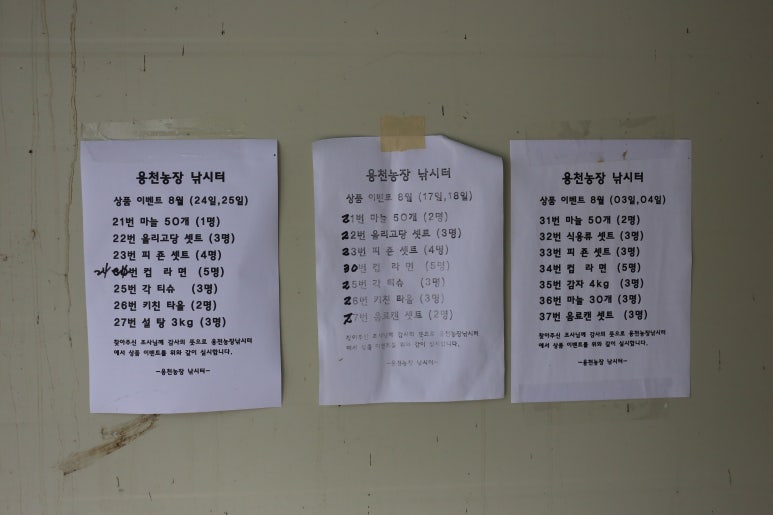 용천농장 낚시터
상품 이벤트 8월 (24일,25일)
21번 마늘 50개 (1명)
22번 올리고당 셋트 (3명)
23번 피 죤 셋트 (4명)
번 컵 라 면 (5명)
25번 각 티슈 (3명)
26번 키친 타올 (2명)
27번 설 탕 3kg (3명)
찾아주신 조사님께 감사의 뜻으로 용천농장낚시터
에서 상품 이벤트를 위와 같이 실시합니다.
-용천농장 낚시터-
용천농장 낚시터
상품 이벤트 8월 (17일,18일)
21번 마늘 50개 (2명)
22번 올리고당 셋트 (3명)
23번 피 죤 셋트 (4명)
30번 컵 라 면 (5명)
25번 각 티슈 (3명)
26번 키친 타올 (3명)
27번 음료캔 셋트 (2명)
찾아주신 조사님께 감사의 뜻으로 용천농장낚시터
에서 상품 이벤트를 위와 같이 실시합니다.
-용천농장 낚시터-
용천농장 낚시터
상품 이벤트 8월 (03일,04일)
31번 마늘 50개 (2명)
32번 식용류 셋트 (3명)
33번 피 죤 셋트 (3명)
34번 컵 라 면 (5명)
35번 감자 4kg (3명)
36번 마늘 30개 (3명)
37번 음료캔 셋트 (3명)
찾아주신 조사님께 감사의 뜻으로 용천농장낚시터
에서 상품 이벤트를 위와 같이 실시합니다.
-용천농장 낚시터-